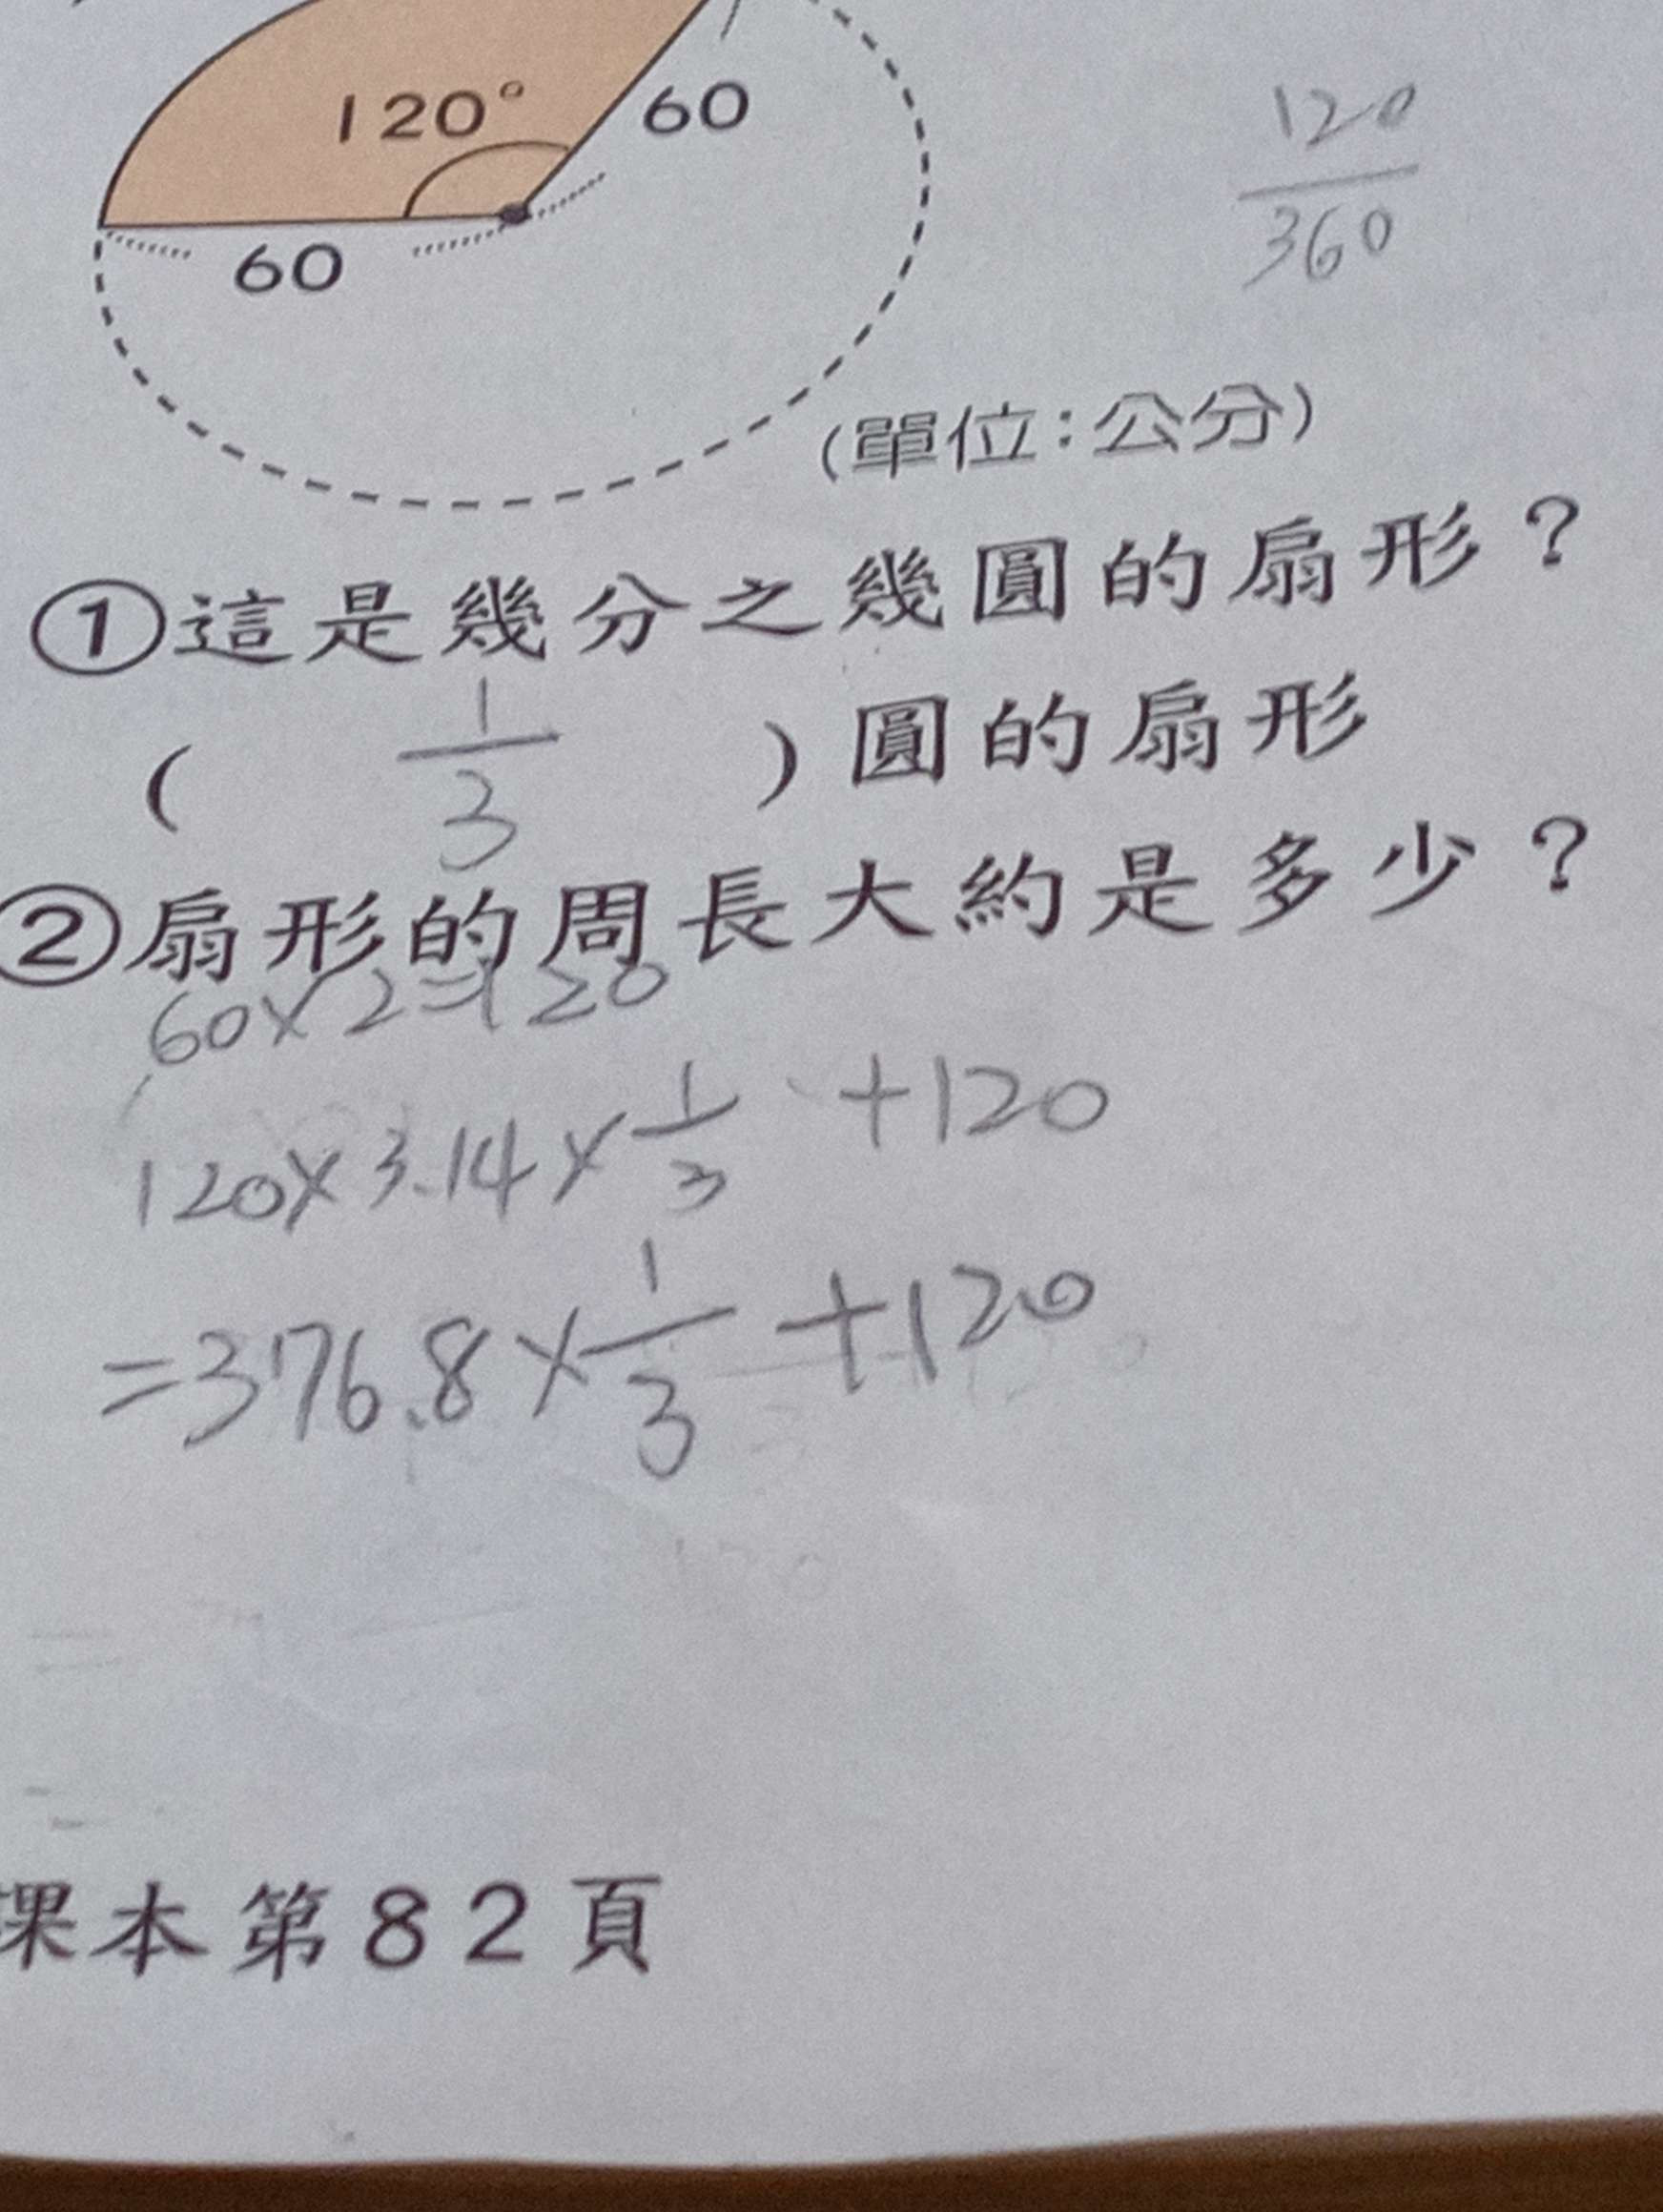 120°
60
60
120
360
(單位:公分)
①這是幾分之幾圓的扇形?
( 1/3 )圓的扇形
②扇形的周長大約是多少?
60×2=120
120×3.14×1/3 +120
=376.8×1/3 +120
課本第82頁